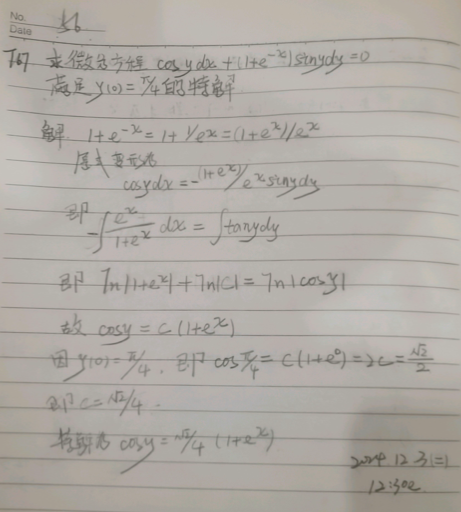 No.
Date
56
T67 求微分方程 cosydx+(1+e^{-x})sinydy=0
满足y(0)=π/4的特解
解 1+e^{-x}=1+1/e^x=(1+e^x)/e^x
原式变形为
cosydx=-(1+e^x)/e^x sinydy
即 -∫e^x/(1+e^x) dx=∫tanydy
即 ln|1+e^x|+ln|C|=ln|cosy|
故 cosy=C(1+e^x)
因 y(0)=π/4. 即 cosπ/4=C(1+e^0)=2C=√2/2
即C=√2/4.
特解为 cosy=√2/4 (1+e^x)
2024 12 31(=)
12:302